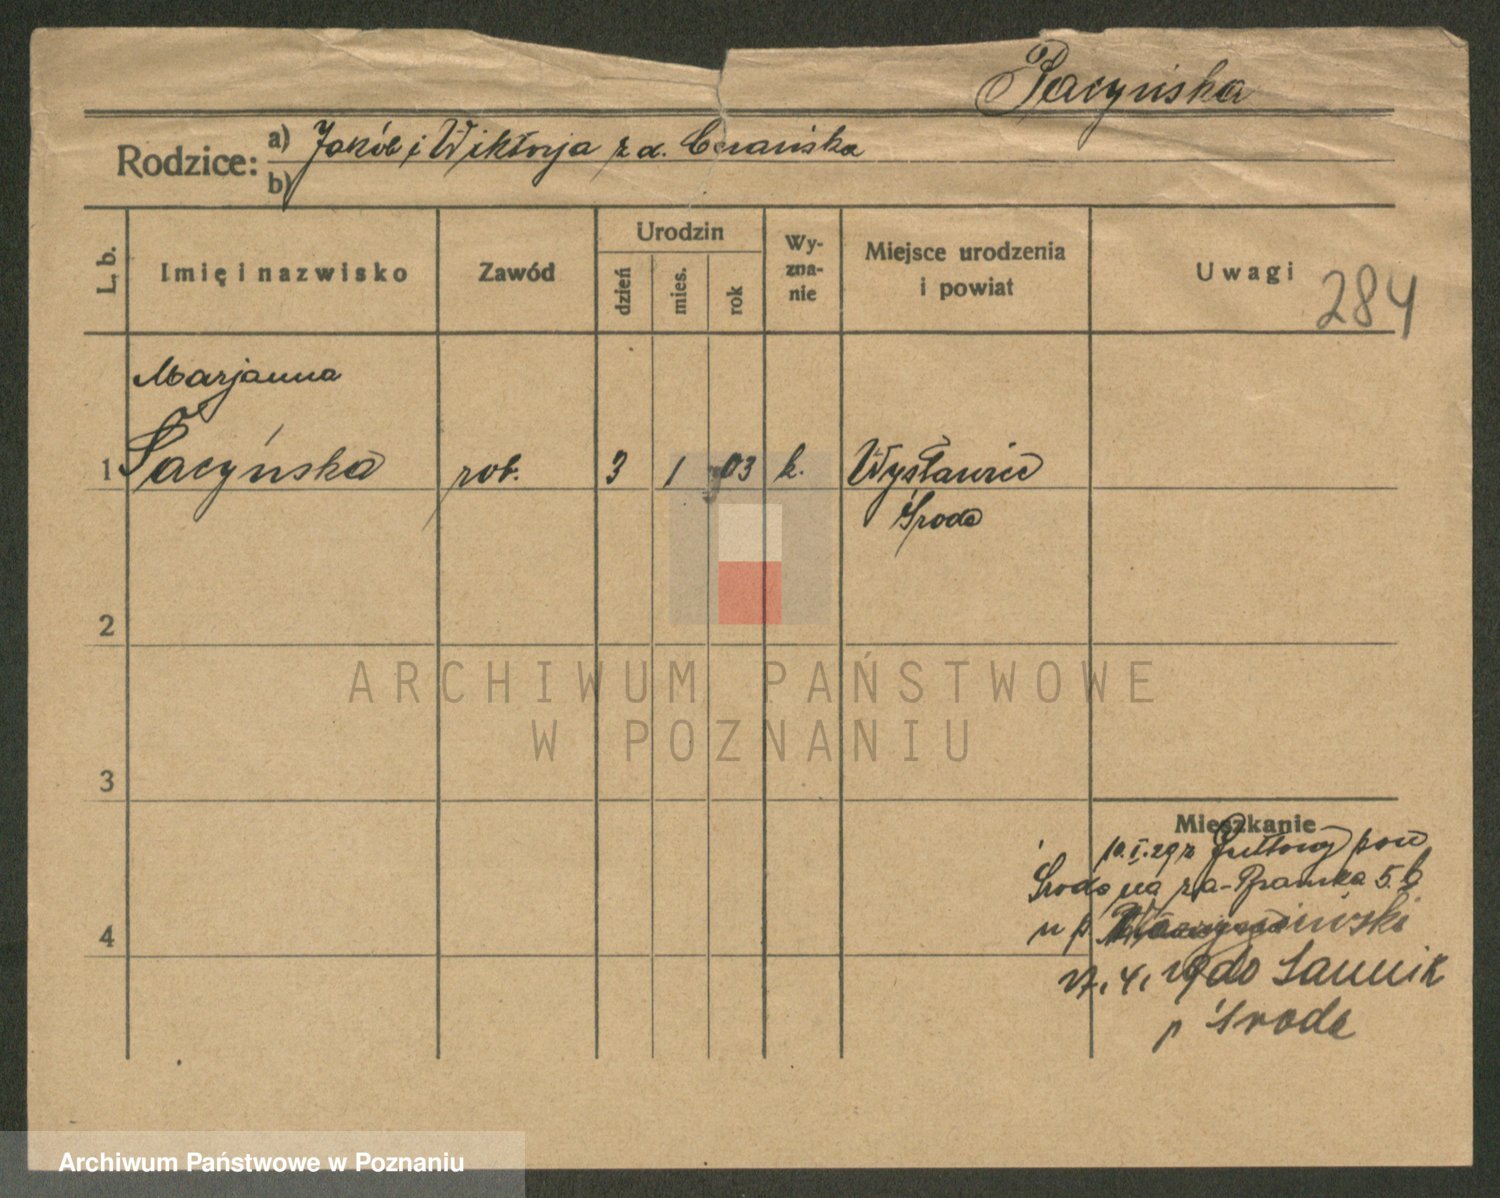 Pacyńska
Rodzice: a) Jakób i Wiktorja z d.
b)
L. b.
Imię i nazwisko
Zawód
Urodzin
dzień
mies.
rok
Wy-
zna-
nie
Miejsce urodzenia
i powiat
Uwagi
284
Marjanna
1 Pacyńska rob. 3 1 03 k. Wysławice
Środa
2
3
Mieszkanie
10.I.29 z Gułtowy pow
Środa na
4
do
p Środa
ARCHIWUM PAŃSTWOWE
W POZNANIU
Archiwum Państwowe w Poznaniu